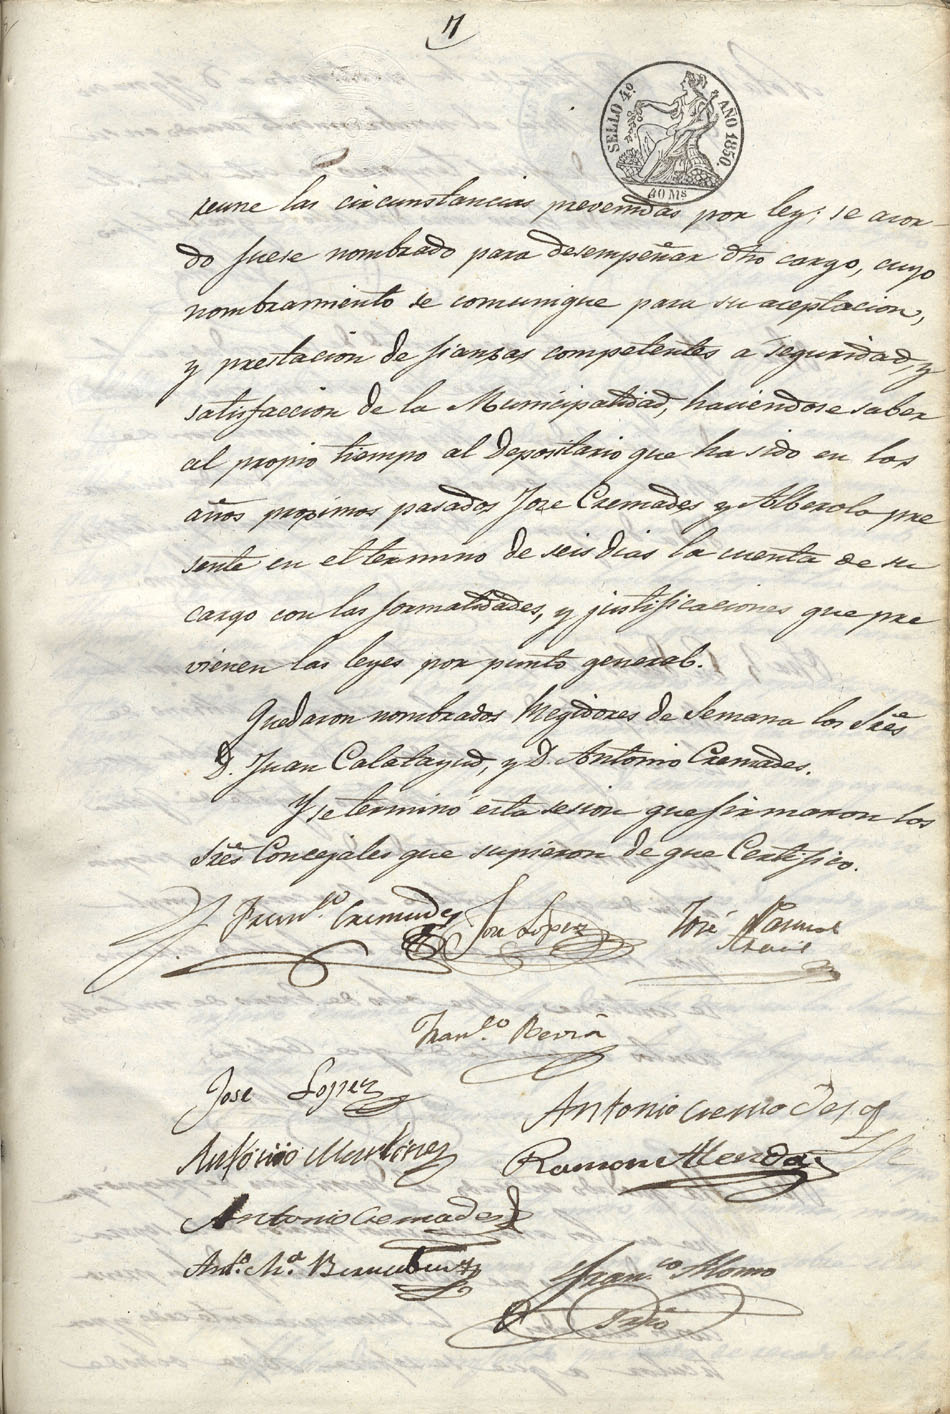 SELLO 4º AÑO 1850.
40 Ms
reune las circunstancias prevenidas por ley; se acor-
do fuese nombrado para desempeñar dho cargo, cuyo
nombramiento se comunique para su aceptacion,
y prestacion de fianzas competentes a seguridad, y
satisfaccion de la Municipalidad, haciendose saber
al propio tiempo al Depositario que ha sido en los
años proximos pasados Jose Cremades y Alberola pre
sente en el termino de seis dias la cuenta de su
cargo con las formalidades, y justificaciones que pre
vienen las leyes por punto general.
Quedaron nombrados Regidores de Semana los Sres
D. Juan Calatayud, y D. Antonio Cremades.
Y se terminó esta sesion que firmaron los
Sres Concejales que supieron de que Certifico.
Franco. Cremades Jose Lopez José
Franco. Beviá
Jose Lopez
Antonio Cremades
Antonio Martinez Ramon Alenda
Antonio Cremades
Anto. Ma. Bernabeu
Franco. Alonso
Srio